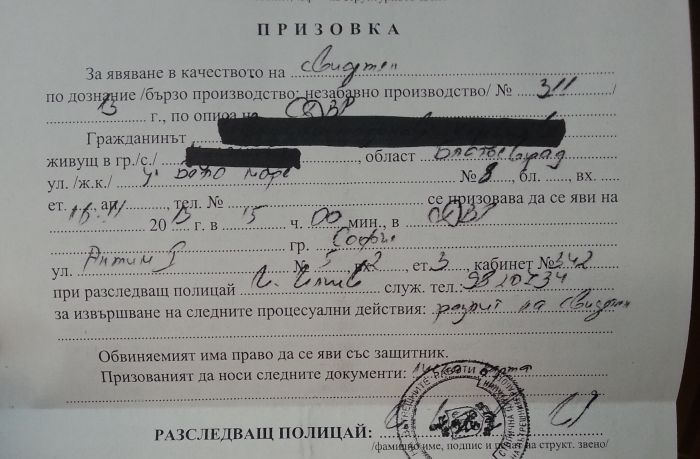 ПРИЗОВКА
За явяване в качеството на свидетел
по дознание /бързо производство; незабавно производство/ № 311 /
13 г., по описа на СДВР
Гражданинът
живущ в гр./с./ , област Благоевград
ул. /ж.к./ ул. Бяло море № 8, бл. , вх.
ет. , ап. , тел. № се призовава да се яви на
16.11 2013 г. в 15 ч. 00 мин., в СДВР
гр. София
ул. Антим I № 5, вх. 2, ет. 3, кабинет № 342
при разследващ полицай служ. тел.: 9820734
за извършване на следните процесуални действия: разпит на свидетел
Обвиняемият има право да се яви със защитник.
Призованият да носи следните документи: лична карта
РАЗСЛЕДВАЩ ПОЛИЦАЙ:
/фамилно име, подпис и печат на структ. звено/